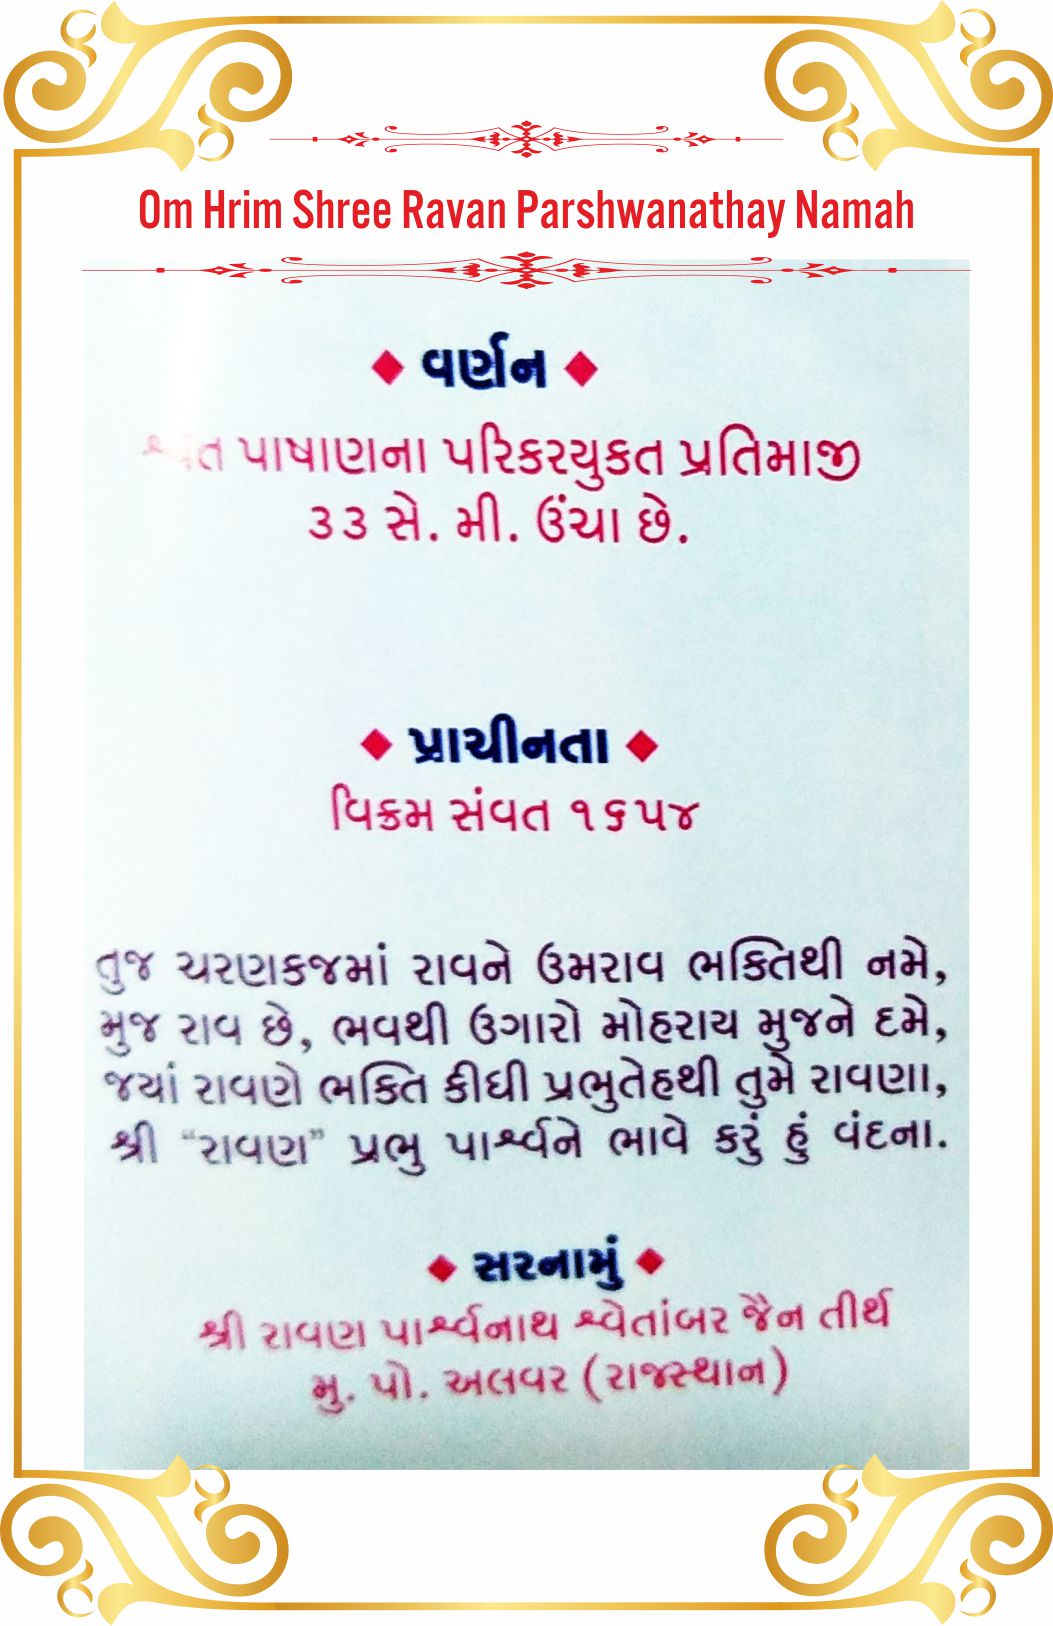 Om Hrim Shree Ravan Parshwanathay Namah
વર્ણન
શ્વેત પાષાણના પરિકરયુકત પ્રતિમાજી
૩૩ સે. મી. ઉંચા છે.
પ્રાચીનતા
વિક્રમ સંવત ૧૬૫૪
તુજ ચરણકજમાં રાવને ઉમરાવ ભક્તિથી નમે,
મુજ રાવ છે, ભવથી ઉગારો મોહરાય મુજને દમે,
જયાં રાવણે ભક્તિ કીધી પ્રભુતેહથી તુમે રાવણા,
શ્રી “રાવણ” પ્રભુ પાર્શ્વને ભાવે કરું હું વંદના.
સરનામું
શ્રી રાવણ પાર્શ્વનાથ શ્વેતાંબર જૈન તીર્થ
મુ. પો. અલવર (રાજસ્થાન)